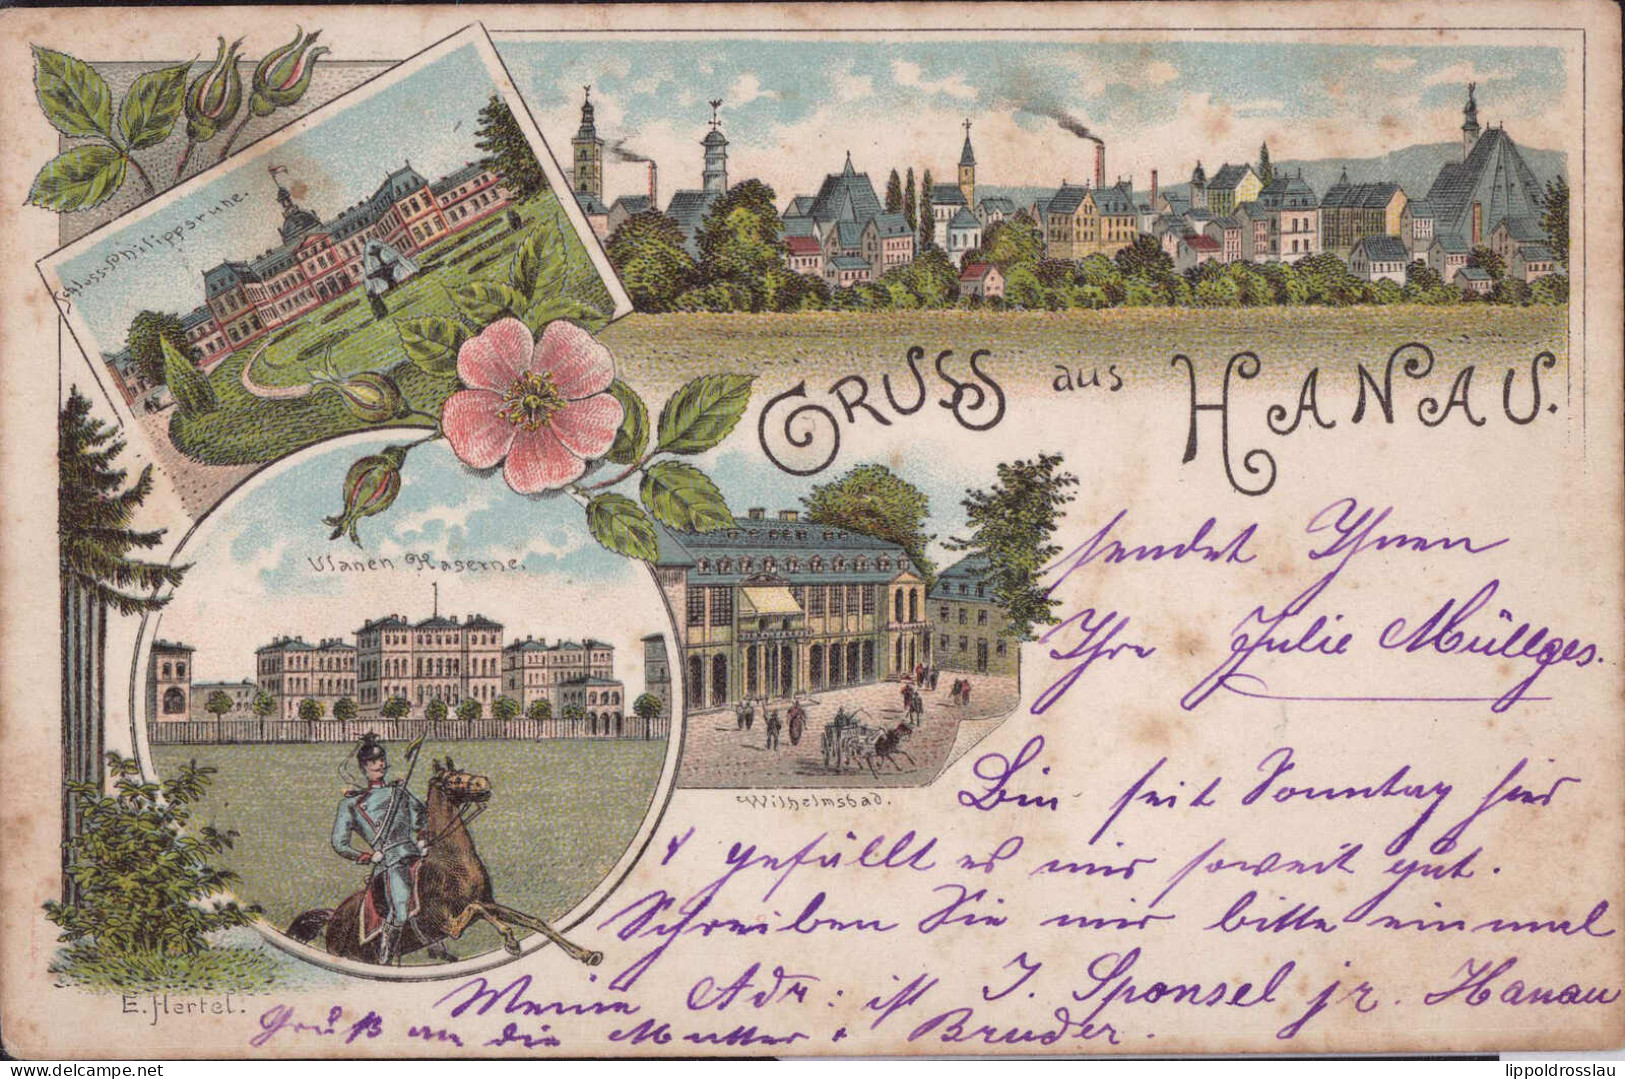 Schloss-Philippsruhe.
GRUSS aus HANAU.
Ulanen Kaserne.
Wilhelmsbad.
sendet Ihnen
Ihre Julie Müllges.
Bin seit Sonntag hier
& gefällt es mir soweit gut.
Schreiben Sie mir bitte einmal
Meine Adr: ist J. Sponsel jr. Hanau
Gruß an die Mutter & Bruder.
E. Hertel.
www.delcampe.net
lippoldrosslau